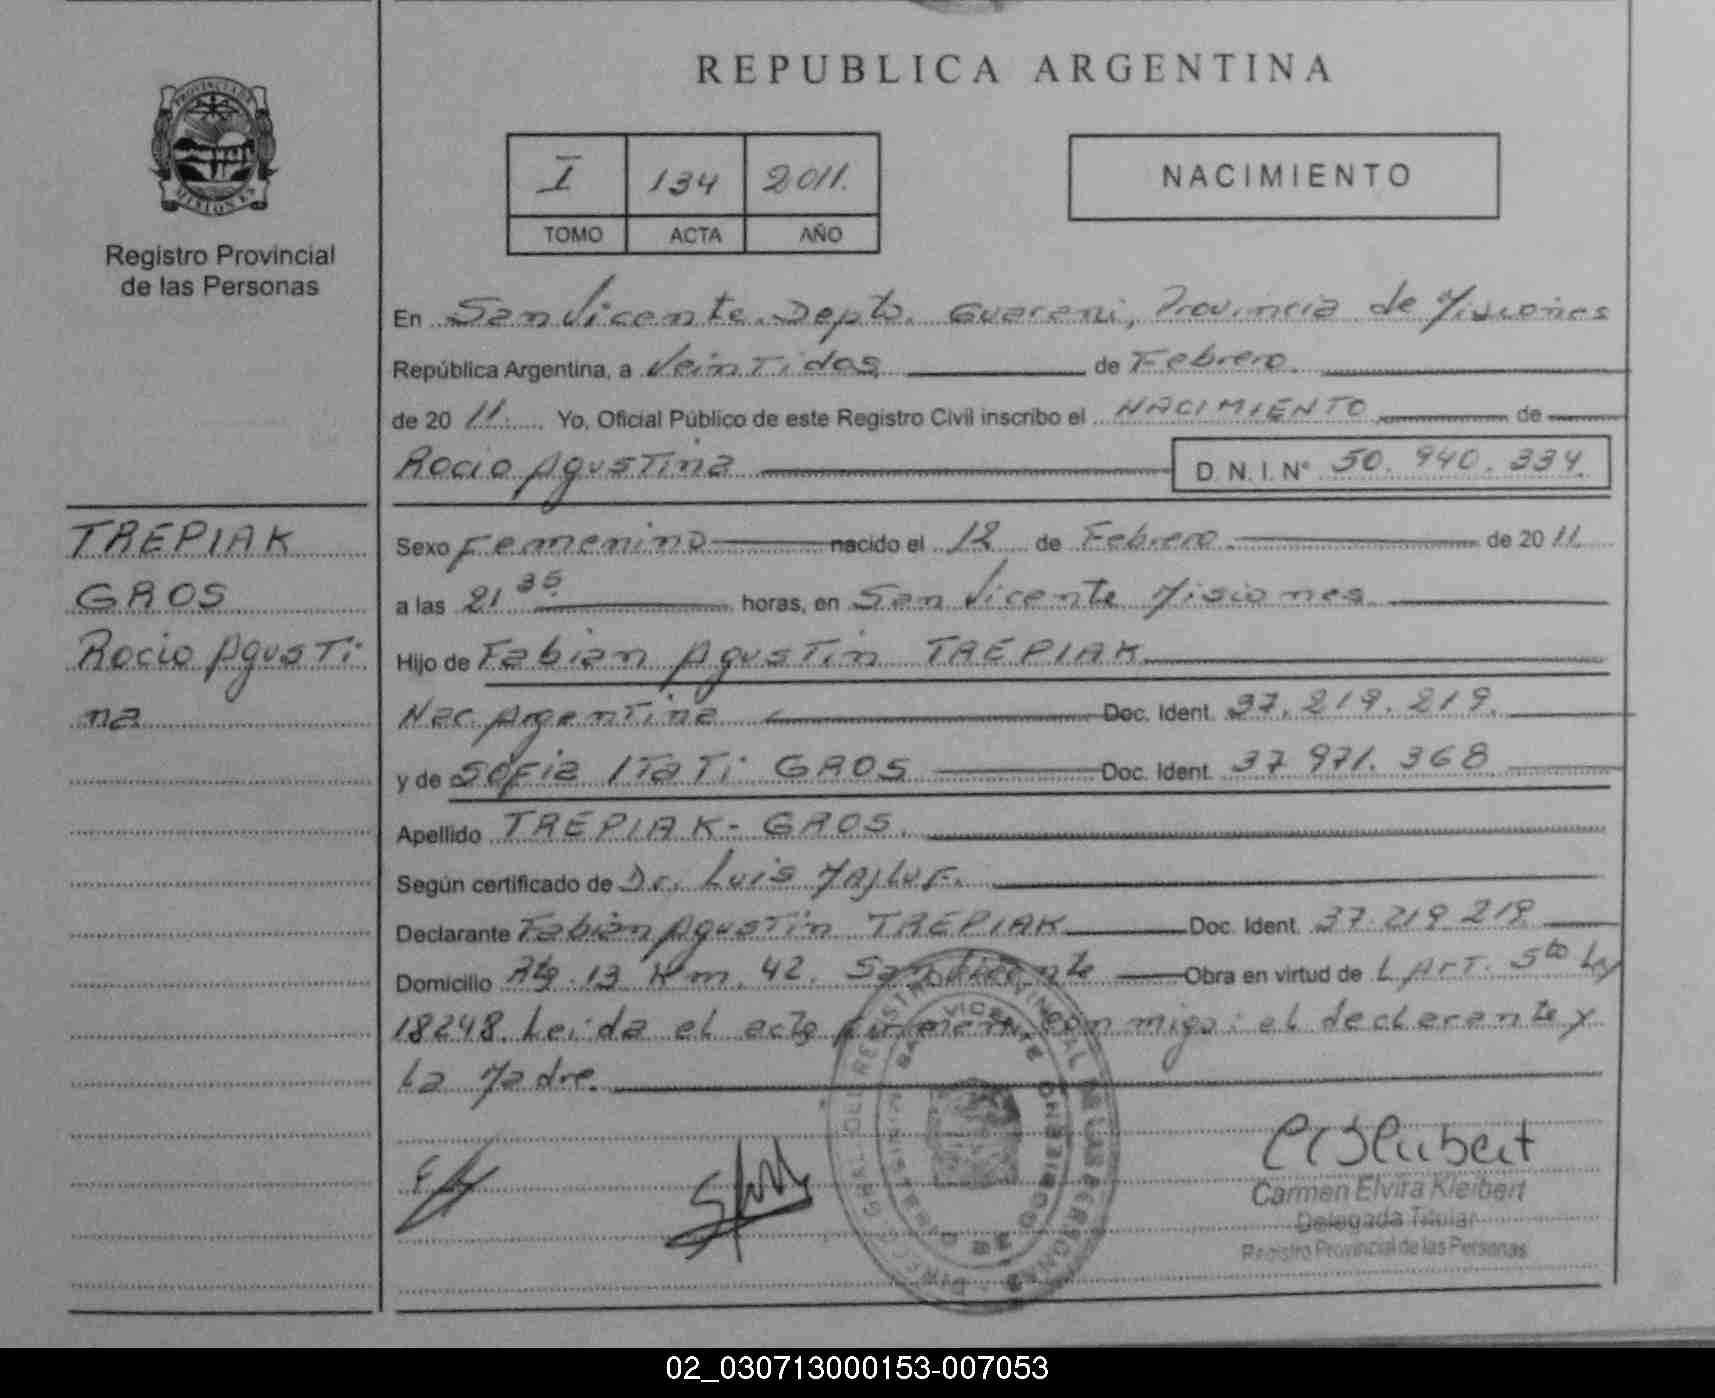 REPUBLICA ARGENTINA
PROVINCIA DE
MISIONES
Registro Provincial
de las Personas
I 134 2011.
TOMO ACTA AÑO
NACIMIENTO
En San Vicente. Depto. Guarani, Provincia de Misiones
República Argentina, a Veintidos de Febrero.
de 20 11. Yo, Oficial Público de este Registro Civil inscribo el NACIMIENTO de
Rocio Agustina D.N.I.Nº 50.940.334.
TREPIAK
GROS
Rocio Agusti
na
Sexo Femenino nacido el 12 de Febrero. de 20 11.
a las 21 35. horas, en San Vicente Misiones.
Hijo de Fabian Agustin TREPIAK
Nac. Argentina Doc. Ident. 37.219.219.
y de Sofia Itati GROS Doc. Ident. 37 971.368
Apellido TREPIAK- GROS.
Según certificado de Dr. Luis Majluf.
Declarante Fabian Agustin TREPIAK Doc. Ident. 37.219 219.
Domicilio Rta. 13 Km. 42. San Vicente Obra en virtud de L Art. 5to Ly
18248. Leida el acta firman conmigo: el declarante y
la Madre.
Carmen Elvira Kleibert
Delegada Titular
Registro Provincial de las Personas
02_030713000153-007053